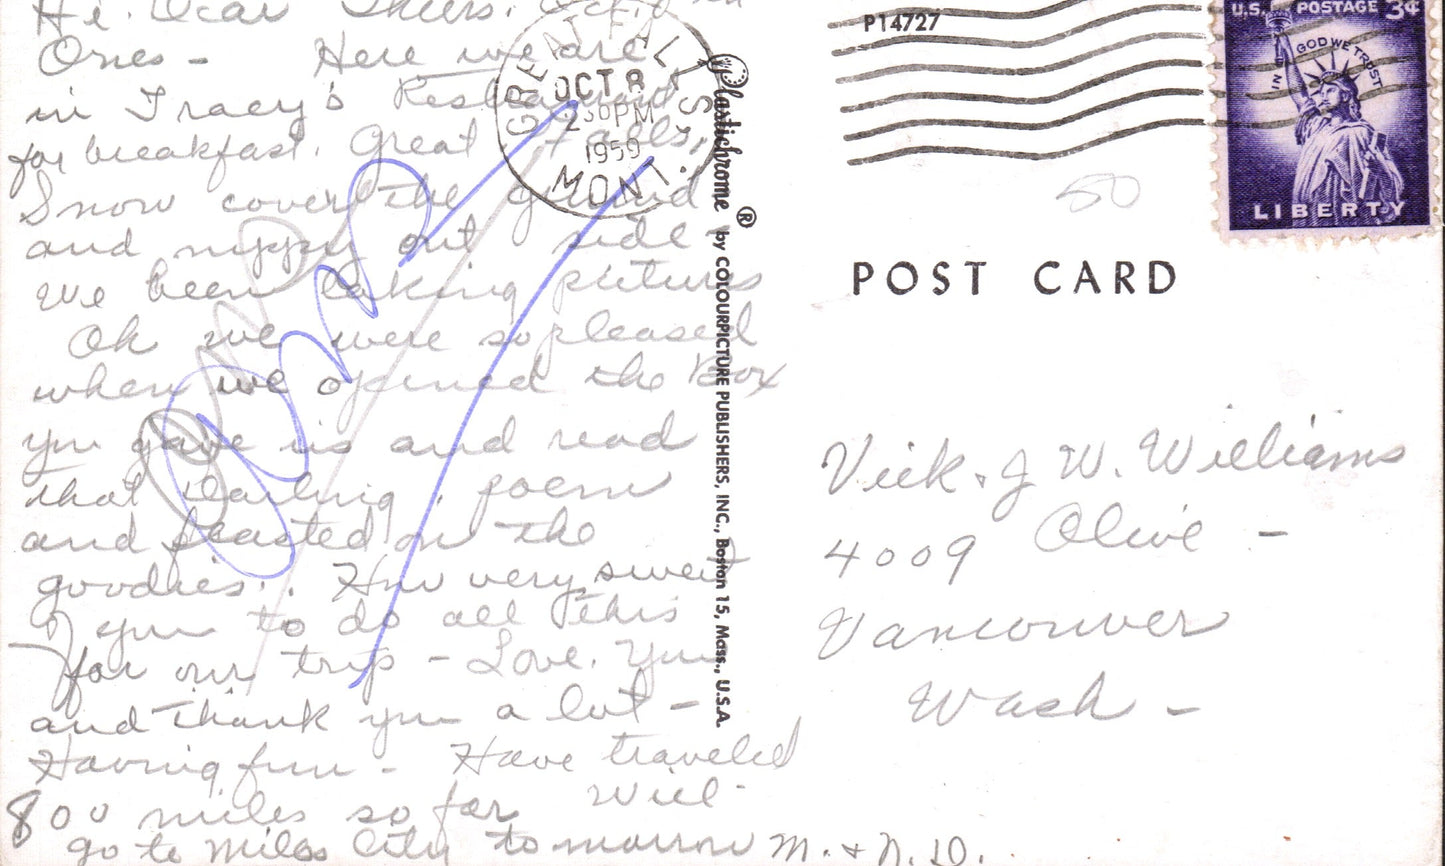 Hi. Dear
Ones - Here we are
in Tracy's Restaurant
for breakfast. Great Falls,
Snow cover the ground
and nippy out side -
We been taking pictures
Oh we were so pleased
when we opened the Box
you gave us and read
that Darling poem
and feasted on the
goodies.. How very sweet
of you to do all this
for our trip - Love. You
and thank you a lot -
Having fun - Have traveled
800 miles so far Will
go to Miles City to morrow M. & N. D.
GREAT FALLS,
OCT 8
2 30 PM
1959
MONT.
Plastichrome ® by COLOURPICTURE PUBLISHERS, INC., Boston 15, Mass., U.S.A.
P14727
U.S. POSTAGE 3¢
IN GOD WE TRUST
LIBERTY
50
POST CARD
Vick & J W. Williams
4009 Olive -
Vancouver
Wash -